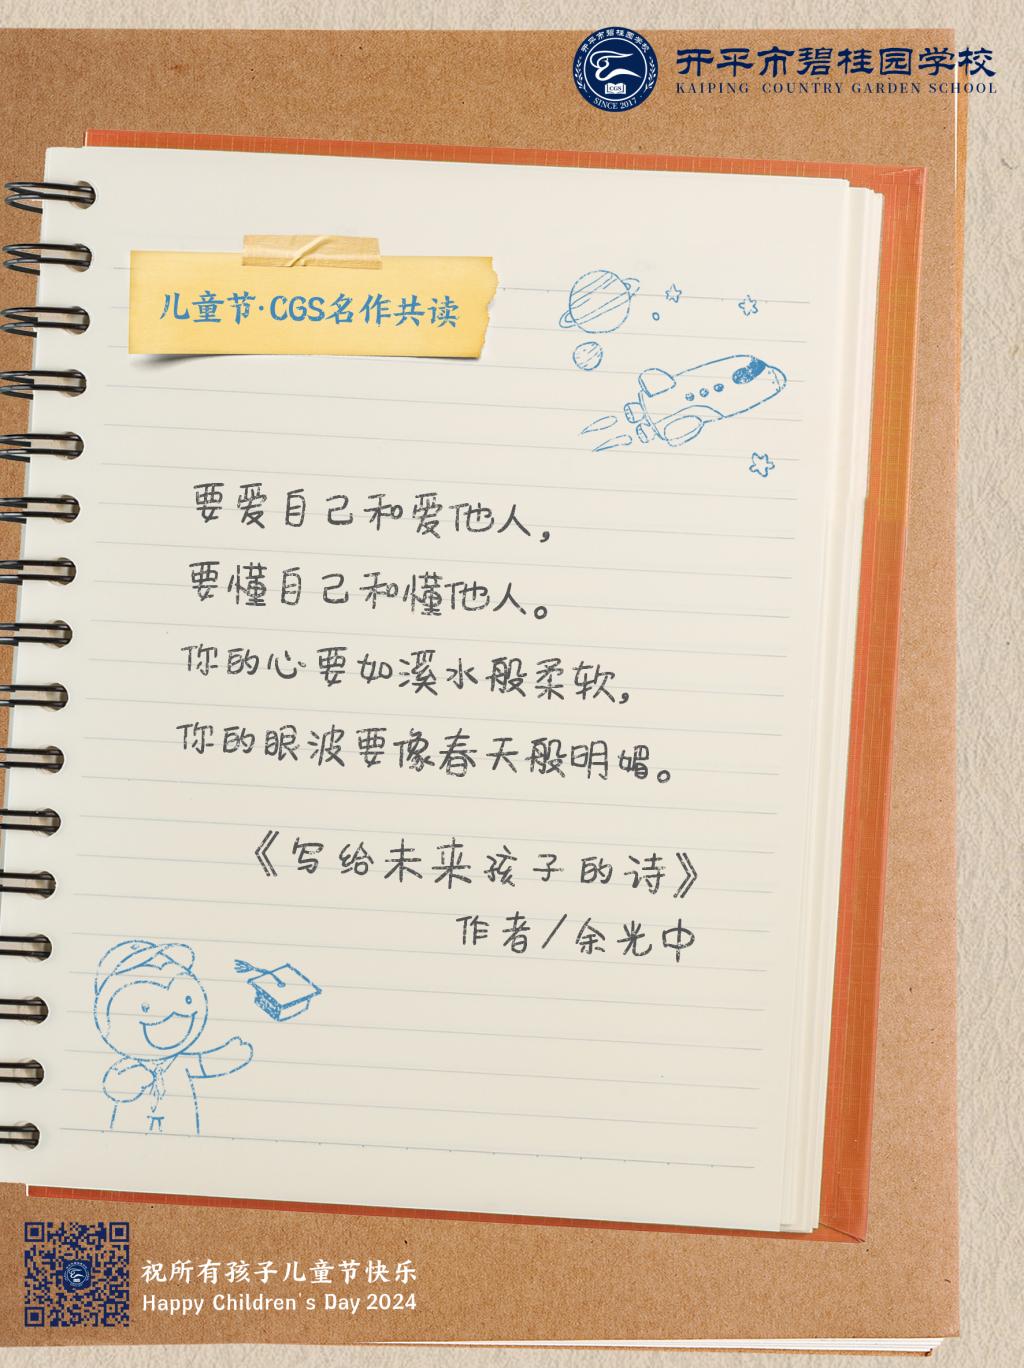 开平市碧桂园学校
CGS
SINCE 2017
开平市碧桂园学校
KAIPING COUNTRY GARDEN SCHOOL
儿童节·CGS名作共读
要爱自己和爱他人，
要懂自己和懂他人。
你的心要如溪水般柔软，
你的眼波要像春天般明媚。
《写给未来孩子的诗》
作者/余光中
祝所有孩子儿童节快乐
Happy Children's Day 2024